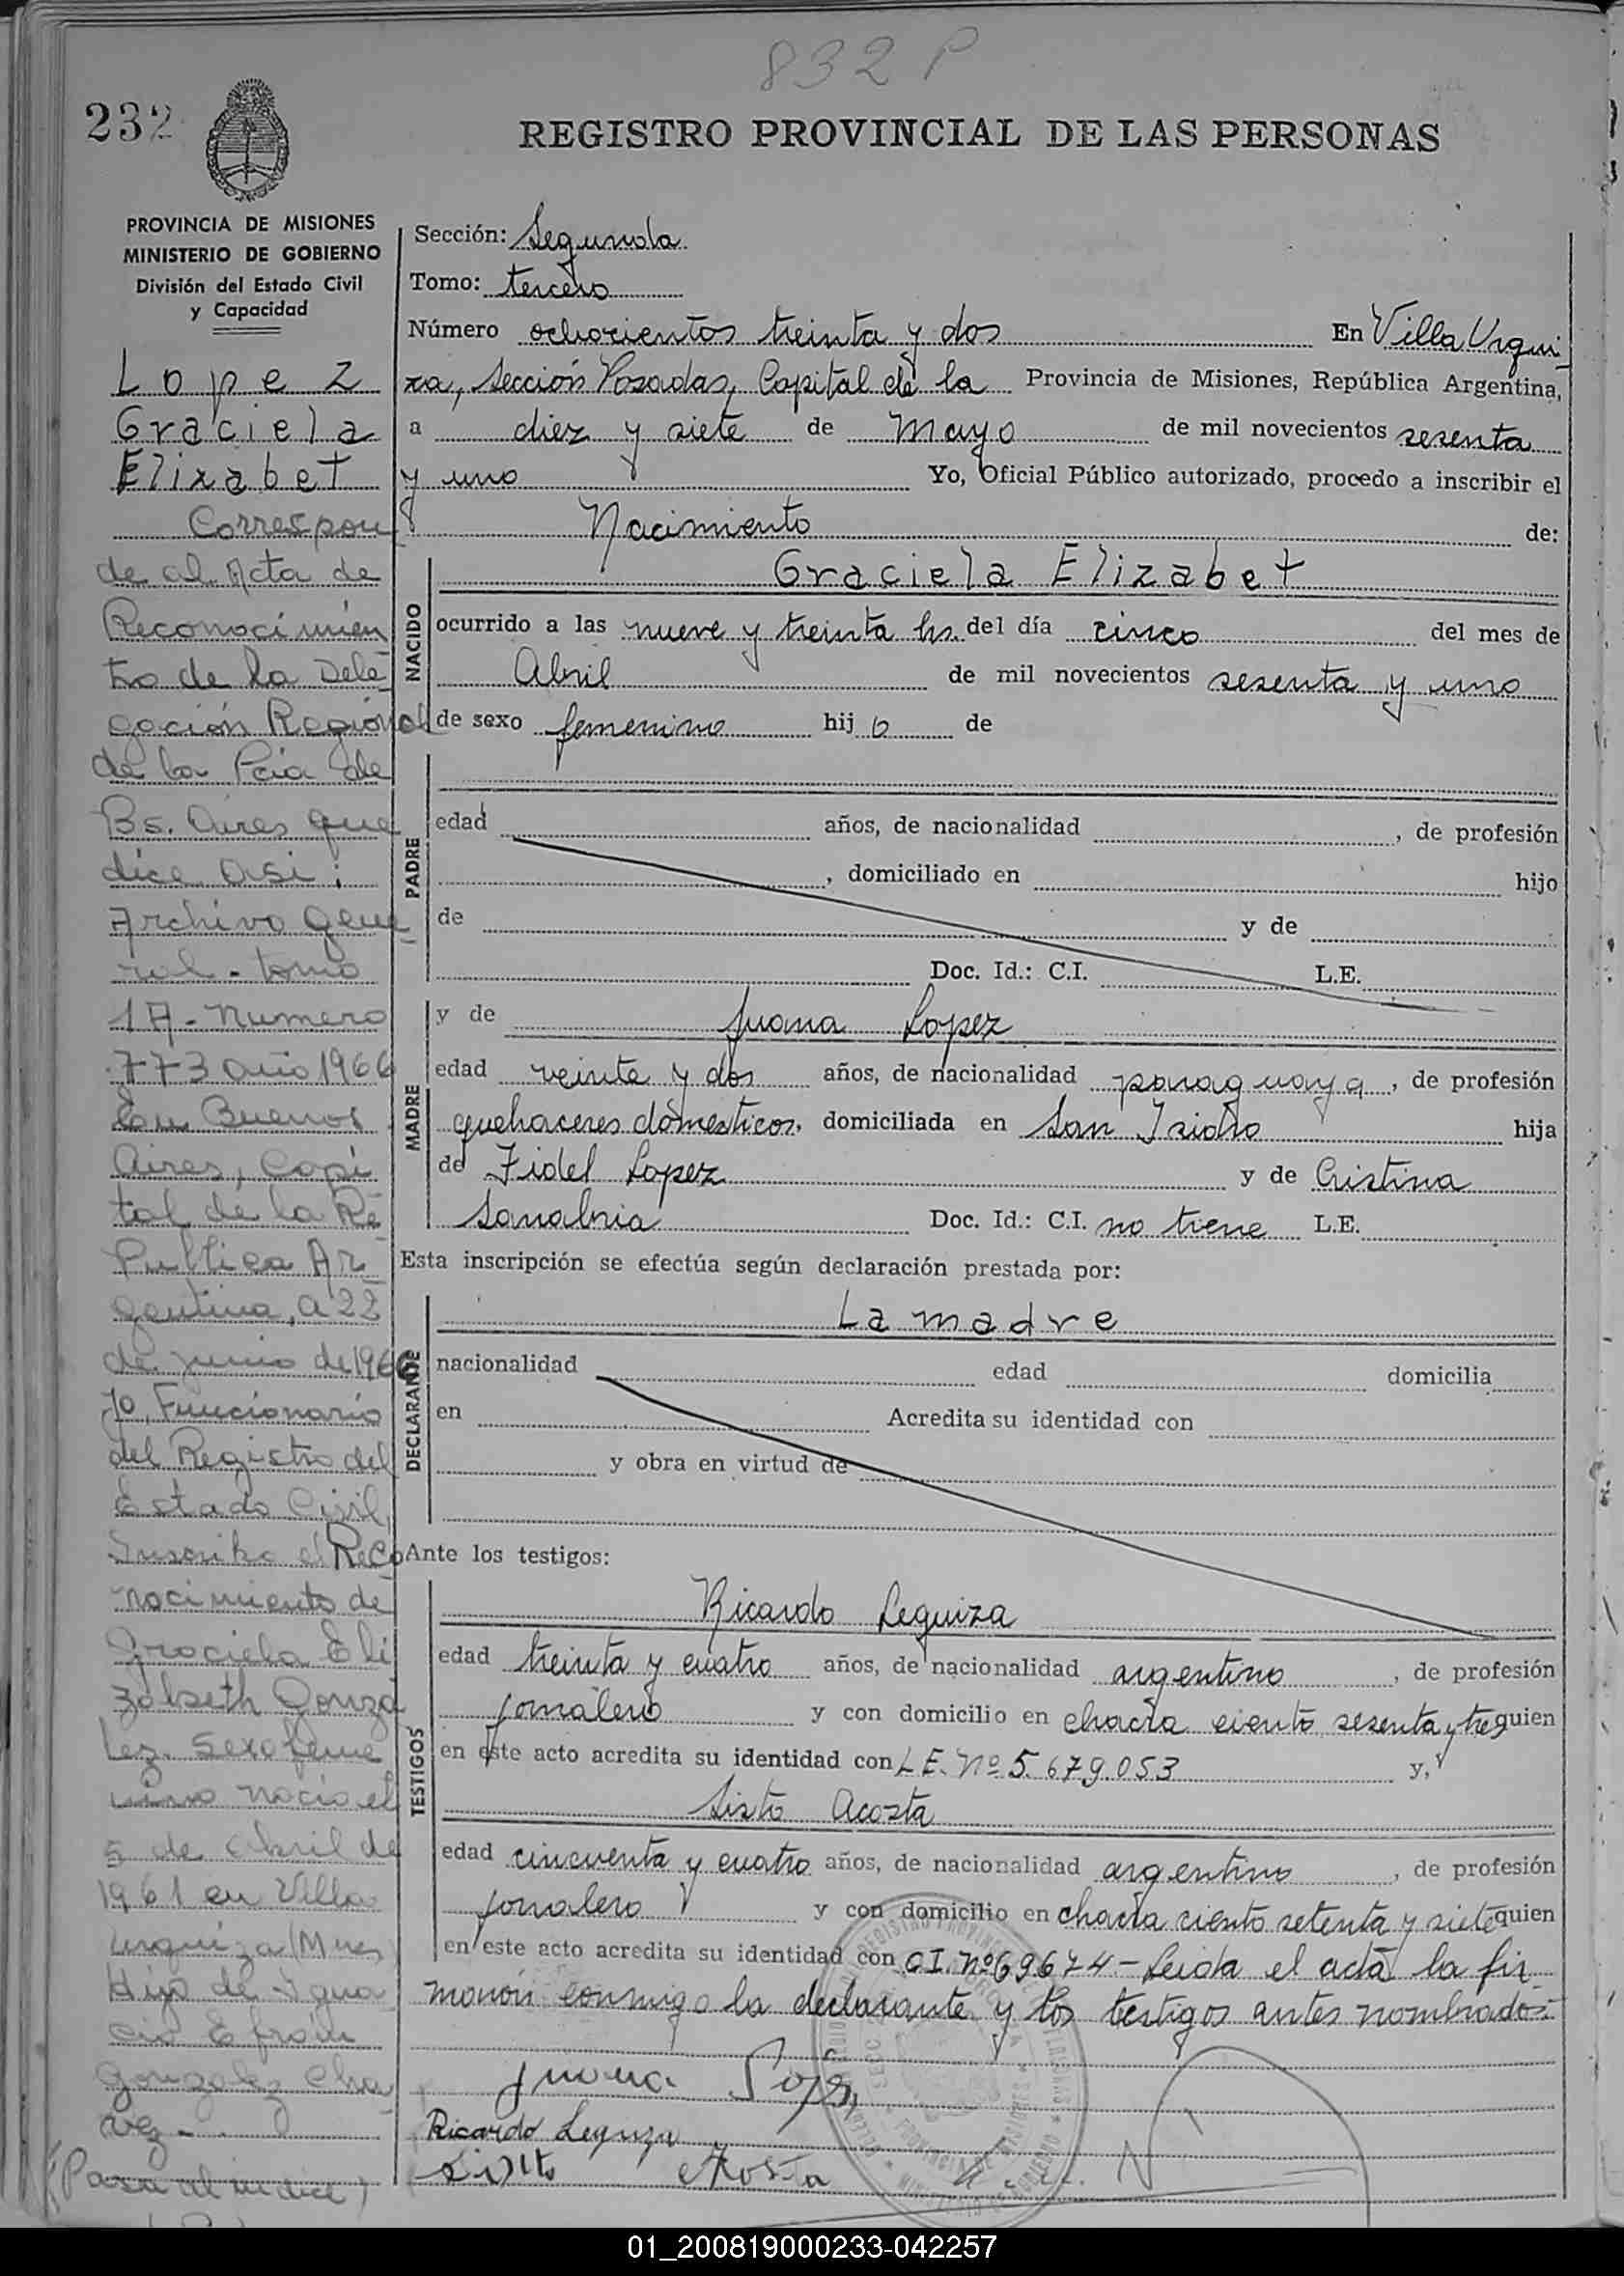 832 P
232
REGISTRO PROVINCIAL DE LAS PERSONAS
PROVINCIA DE MISIONES
MINISTERIO DE GOBIERNO
División del Estado Civil
y Capacidad
Lopez
Graciela
Elizabet
Correspon
de al Acta de
Reconocimien
to de la Dele
gación Regional
de la Pcia de
Bs. Aires que
dice asi:
Archivo Gene
ral - tomo
1A - numero
773 año 1966
En Buenos
Aires, Capi
tal de la Re
publica Ar
gentina, a 22
de junio de 1966
Yo, Funcionario
del Registro del
Estado Civil
Inscribo el Reco
nocimiento de
Graciela Eli
zabeth Gonza
lez. Sexo feme
nino nacio el
5 de Abril de
1961 en Villa
Urquiza (Mnes)
Hija de Igna
cio Efrain
Gonzalez Cha
vez -.
(Pasa al indice)
Sección: Segunda
Tomo: tercero
Número ochocientos treinta y dos En Villa Urqui
za, Sección Posadas, Capital de la Provincia de Misiones, República Argentina,
a diez y siete de Mayo de mil novecientos sesenta
y uno Yo, Oficial Público autorizado, procedo a inscribir el
Nacimiento de:
NACIDO
Graciela Elizabet
ocurrido a las nueve y treinta hs. del día cinco del mes de
Abril de mil novecientos sesenta y uno
de sexo femenino hij o de
PADRE
edad años, de nacionalidad , de profesión
, domiciliado en hijo
de y de
Doc. Id.: C.I. L.E.
MADRE
y de Juana Lopez
edad veinte y dos años, de nacionalidad paraguaya, de profesión
quehaceres domesticos, domiciliada en San Isidro hija
de Fidel Lopez y de Cristina
Sanabria Doc. Id.: C.I. no tiene L.E.
Esta inscripción se efectúa según declaración prestada por:
DECLARANTE
La madre
nacionalidad edad domicilia
en Acredita su identidad con
y obra en virtud de
Ante los testigos:
TESTIGOS
Ricardo Leguiza
edad treinta y cuatro años, de nacionalidad argentino, de profesión
jornalero y con domicilio en chacra ciento sesenta y tres quien
en este acto acredita su identidad con L.E. Nº 5.679.053 y,
Sixto Acosta
edad cincuenta y cuatro años, de nacionalidad argentino, de profesión
jornalero y con domicilio en chacra ciento setenta y siete quien
en este acto acredita su identidad con C.I. Nº 69674 - Leida el acta la fir
maron conmigo la declarante y los testigos antes nombrados.
Juana Lopez
Ricardo Leguiza
Sixto Acosta
01_200819000233-042257